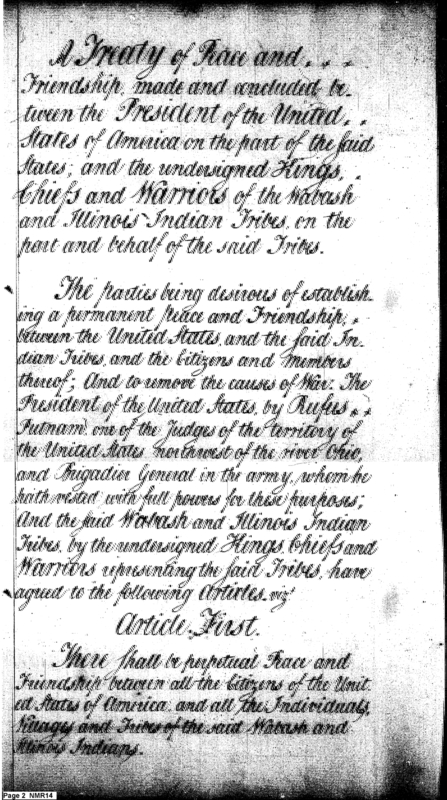 A Treaty of Peace and . . .
Friendship, made and concluded be-
tween the President of the United . .
States of America on the part of the said
States; and the undersigned Kings, .
Chiefs and Warriors of the Wabash
and Illinois Indian Tribes, on the
part and behalf of the said Tribes.
The parties being desirous of establish-
ing a permanent peace and Friendship, .
between the United States, and the said In-
dian Tribes, and the Citizens and members
thereof; And to remove the causes of War: The
President of the United States, by Rufus . .
Putnam, one of the Judges of the territory of
the United States northwest of the river Ohio,
and Brigadier General in the army, whom he
hath vested with full powers for these purposes;
And the said Wabash and Illinois Indian
Tribes, by the undersigned Kings, Chiefs and
Warriors representing the said Tribes, have
agreed to the following Articles. vizt
Article. First.
There shall be perpetual Peace and
Friendship between all the Citizens of the Unit-
ed States of America, and all the Individuals,
Villages and Tribes of the said Wabash and
Illinois Indians.
Page 2 NMR14